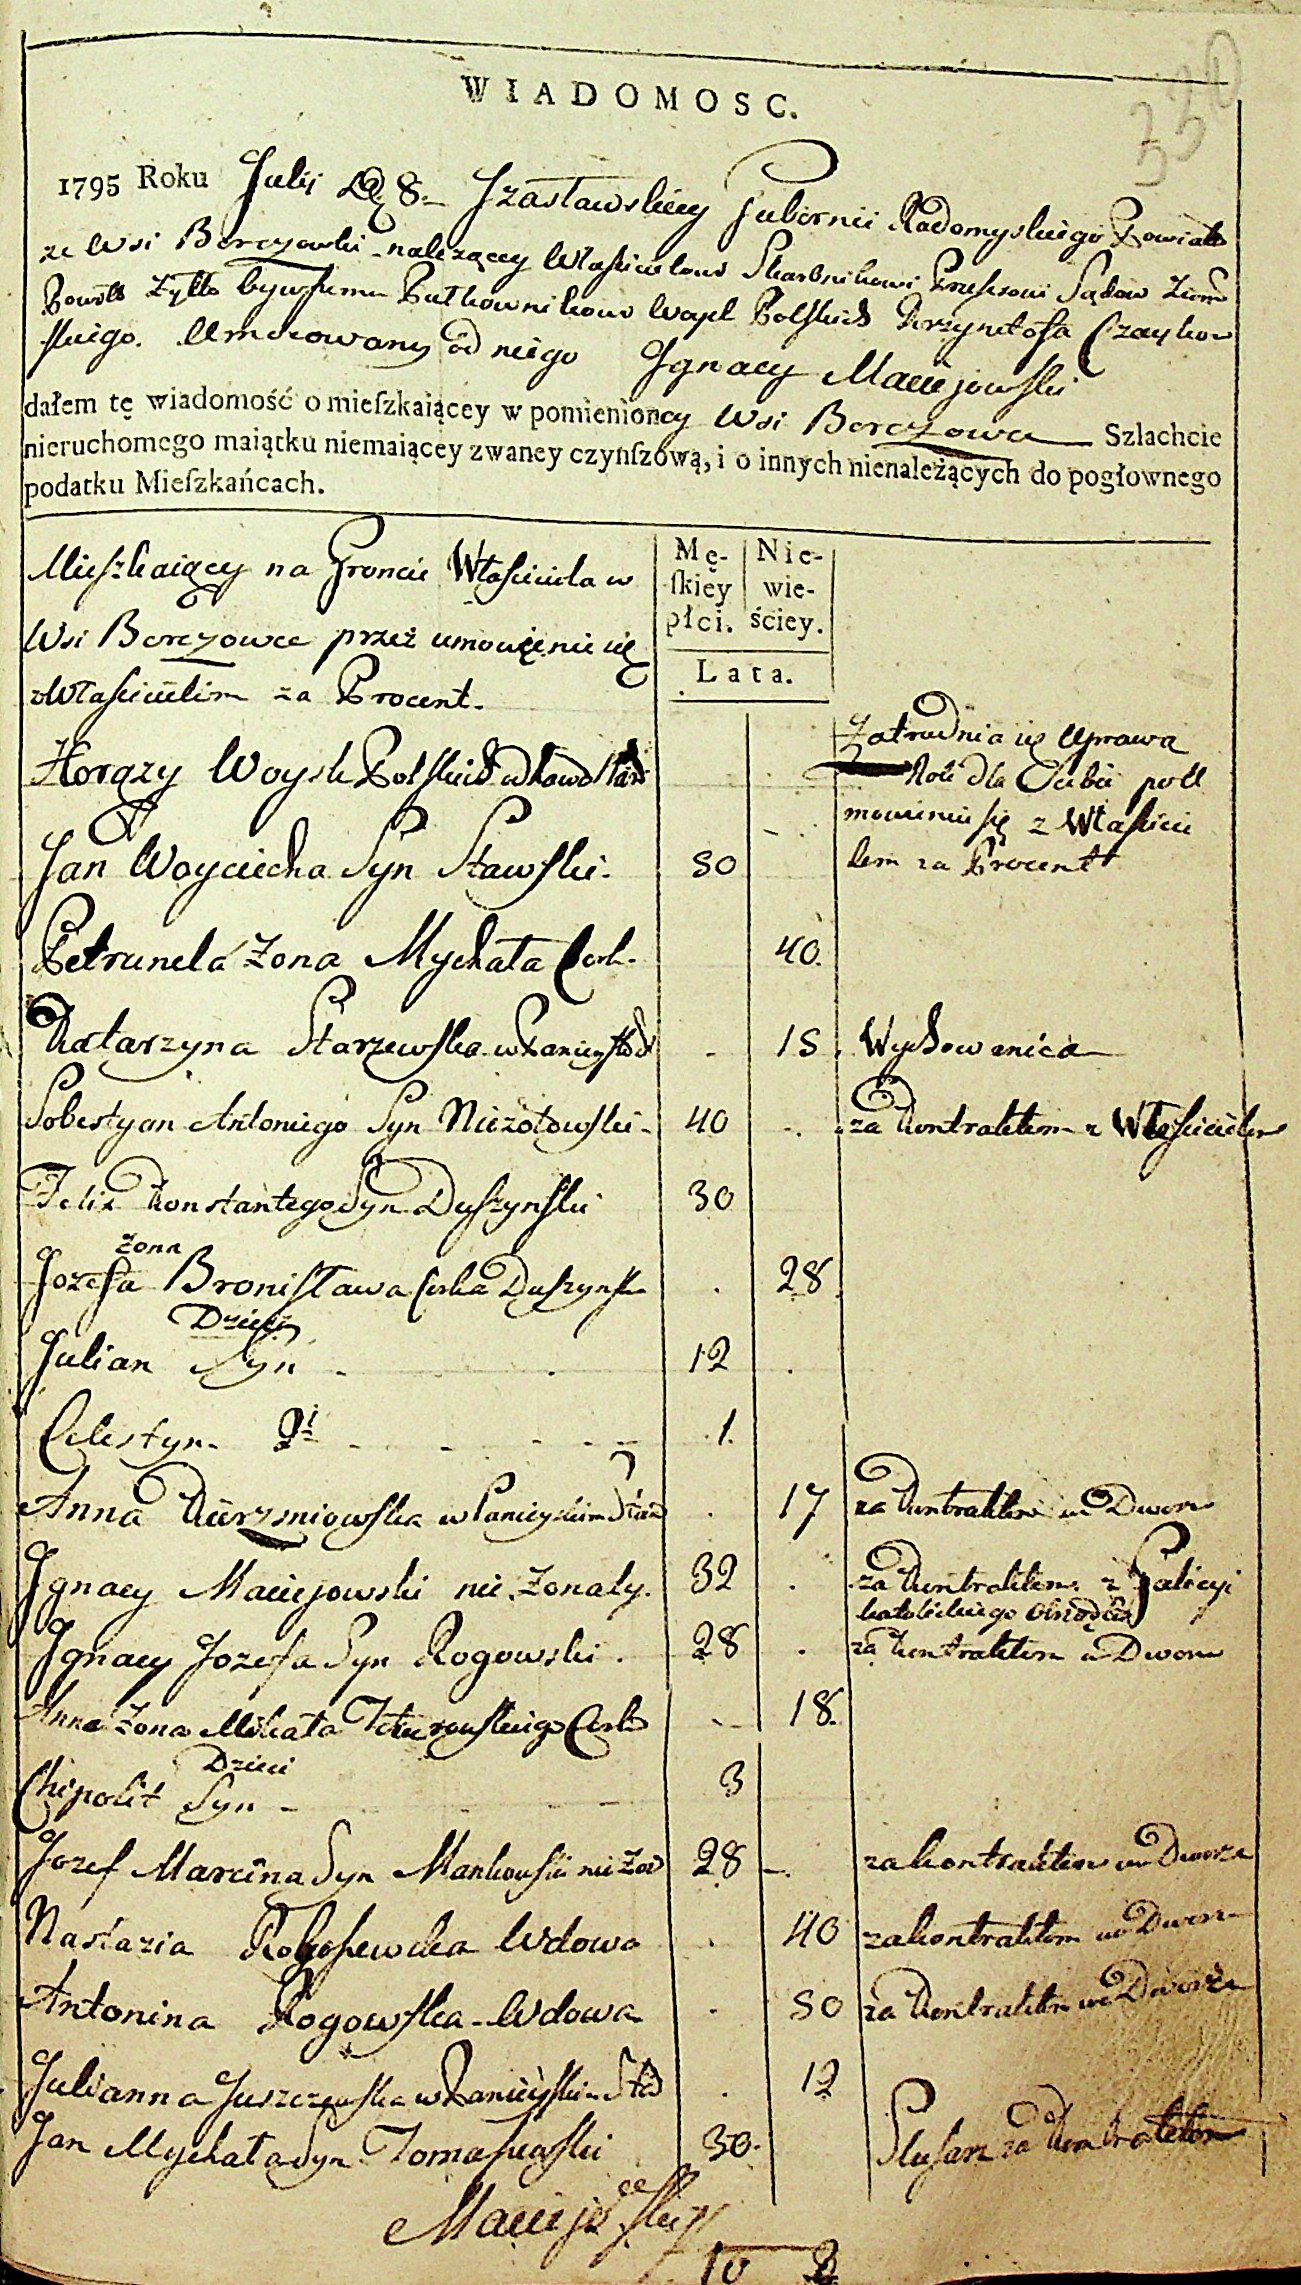 330
WIADOMOSC.
1795 Roku Julij 8. Izasławskiey Gubernii Radomyskiego Powiatu
ze Wsi Borczowki należącey Właścicielowi Skarbnikowi Prezesowi Sądow Ziem
Powtu bywszemu Pułkownikowi Woysk Polskich Krzysztofa Czaykow
skiego. Umocowany od niego Ignacy Maciejowski
dałem tę wiadomość o mieſzkaiącey w pomienioney Wsi Borczowce Szlachcie
nieruchomego maiątku niemaiącey zwaney czynſzową, i o innych nienależących do pogłownego
podatku Mieſzkańcach.
Mieszkaiący na Groncie Właściciela w
Wsi Borczowce przez umowięnie się
z Właścicielim za Procent.
Mę-
ſkiey
płci.
Nie-
wie-
ściey.
Lata.
Horązy Woysk Polskich
Zatrudnia się Uprawą
Roli dla Siebie po U
mowieniu się z Właścicie
lem za Procent
Jan Woyciecha Syn Stawski. 50
Petrunela Zona Mychała Cork. 40.
Katarzyna Starzewska w Panieńs 15. Wychowanica
Sobestyan Antoniego Syn Niezołowski 40 za Kontraktem z Właścicielem
Felix Konstantego Syn Duszynski 30
Zona
Jozefa Bronisława Corka Duszynsk 28
Dzieci
Julian Syn 12
Celestyn. 1.
Anna Kierzniowska w Panieyskim Stan 17 za Kontraktem we Dworze
Ignacy Maciejowski nie Zonaty. 32 za Kontraktem z Galicyi
katolickiego Obrządku
Ignacy Jozefa Syn Rogowski. 28 za Kontraktem u Dworu
Anna Zona Mihała Corka 18.
Dzieci
Chipolit Syn 3
Jozef Marcina Syn Mankowski nie Zon 28 za kontraktem we Dworze
Nastazia Wdowa 40 za kontraktem we Dworze
Antonina Rogowska Wdowa 50 za Kontraktem we Dworze
Julianna Juszczewska w Panieyskim Stan 12
Jan Mychała Syn Tomaszewski 30. Slusarz za Kontraktem
Maciejowski
10